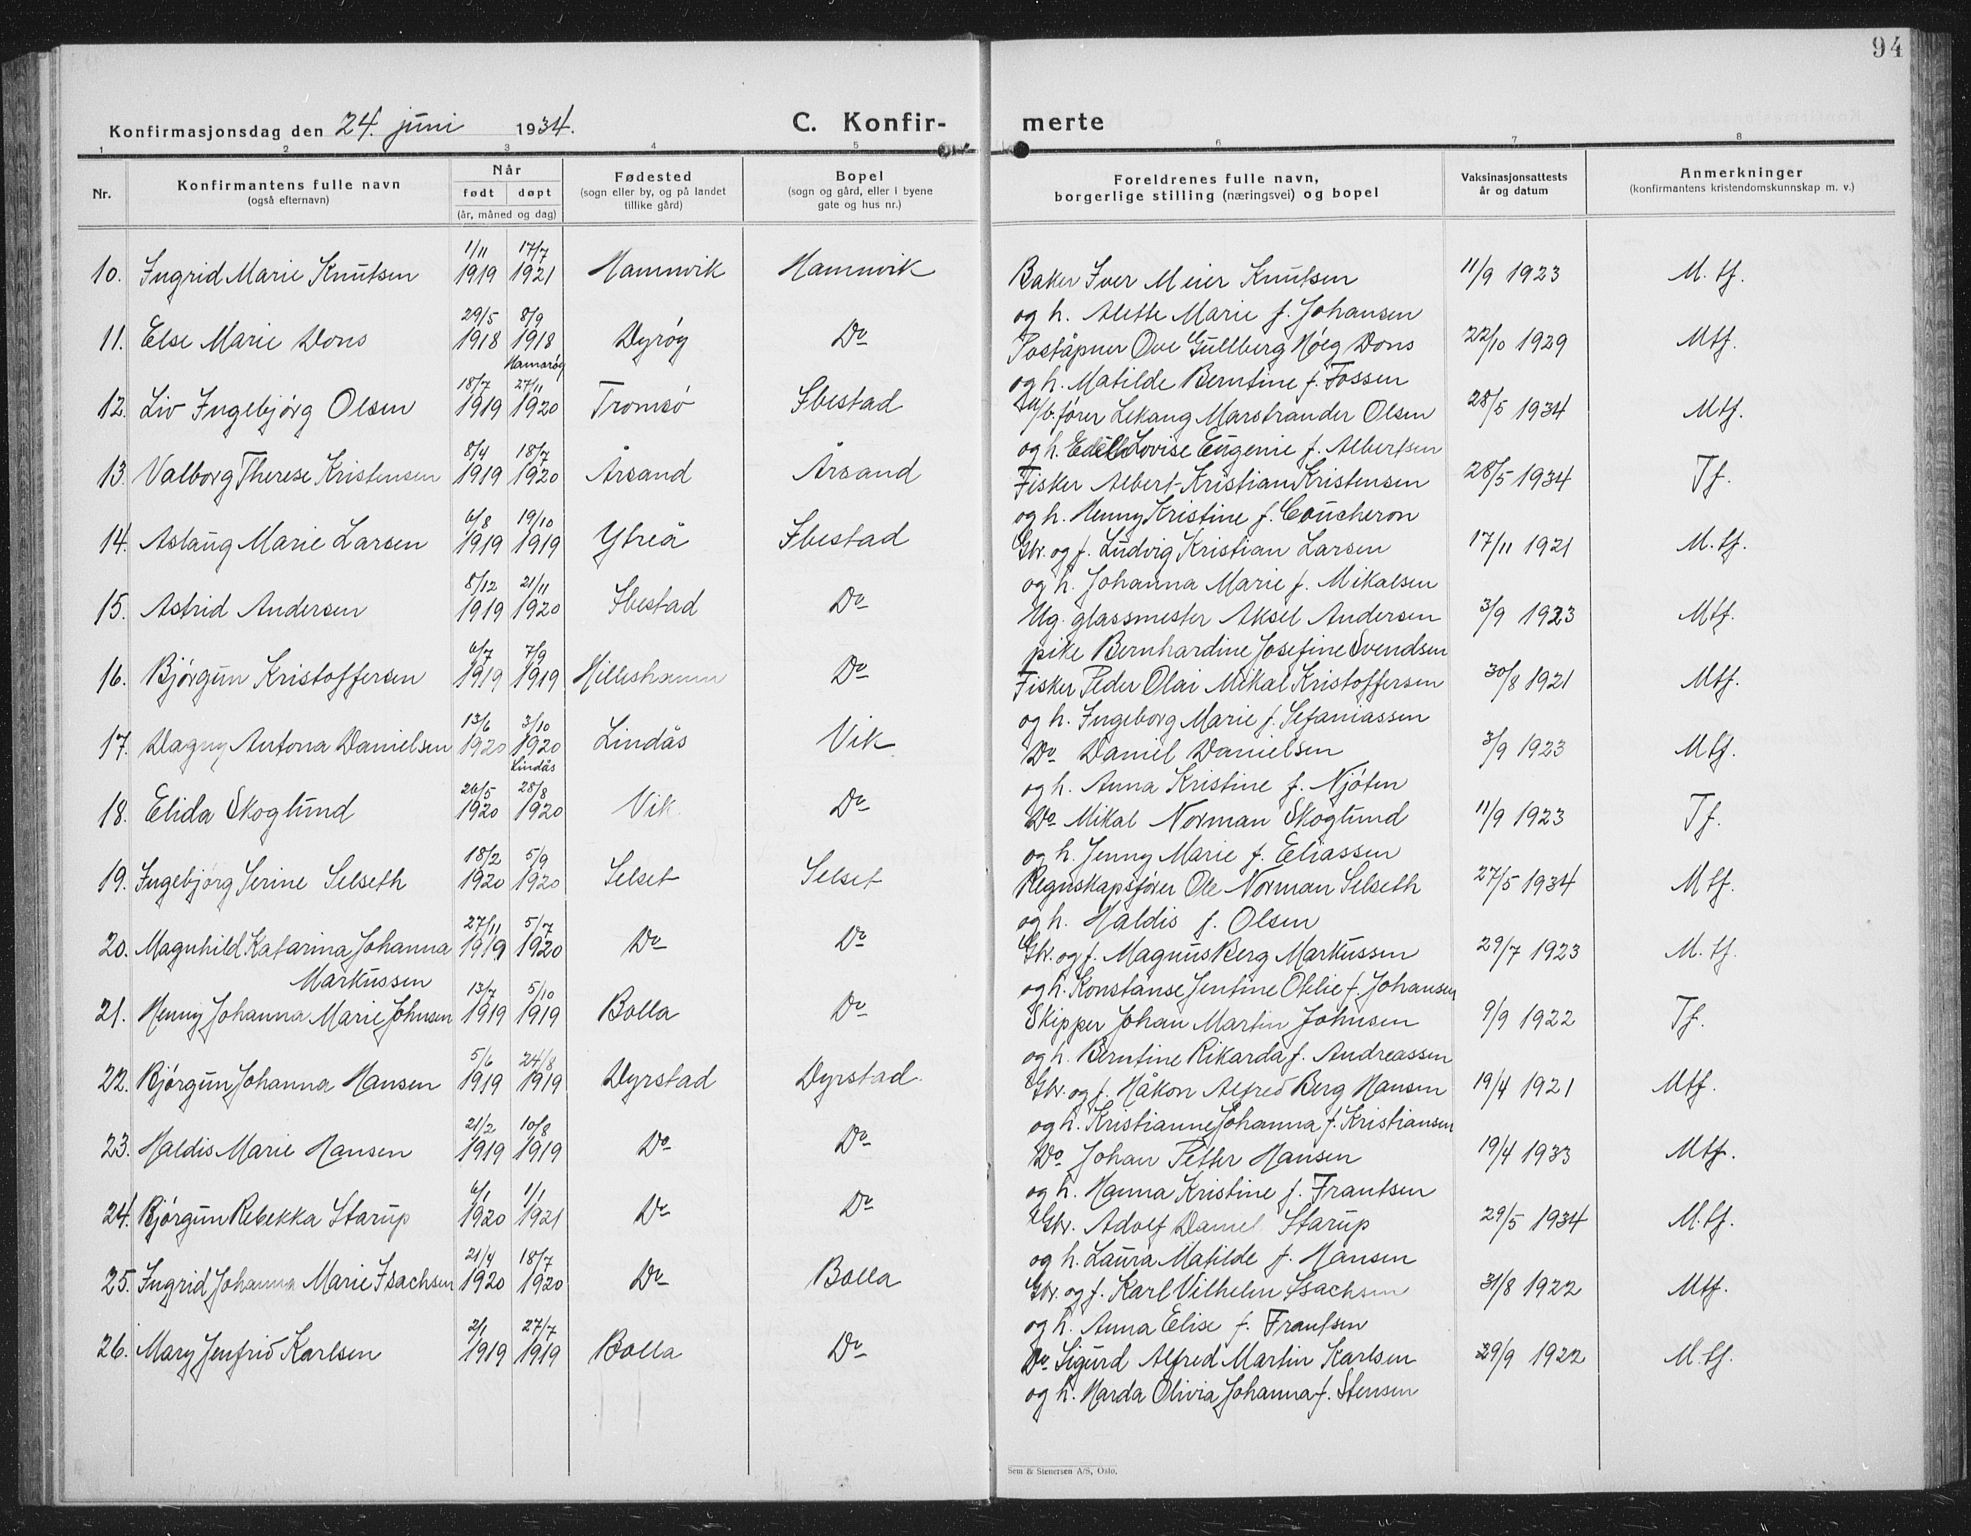 94
Konfirmasjonsdag den 24. juni 1934.
C. Konfir-
merte
1 2 3 4 5 6 7 8
Nr.
Konfirmantens fulle navn
(også efternavn)
Når
født døpt
(år, måned og dag)
Fødested
(sogn eller by, og på landet
tillike gård)
Bopel
(sogn og gård, eller i byene
gate og hus nr.)
Foreldrenes fulle navn,
borgerlige stilling (næringsvei) og bopel
Vaksinasjonsattests
år og datum
Anmerkninger
(konfirmantens kristendomskunnskap m. v.)
1/11 17/7
10. Ingrid Marie Knutsen 1919 1921 Hamnvik Hamnvik Baker Iver Meier Knutsen 11/9 1923 M.tf.
og h. Alette Marie f. Johansen
29/5 8/9
11. Else Marie Dons 1918 1918 Dyrøy Do Poståpner Ove Gullberg Høeg Dons 22/10 1929 Mtf.
og h. Matilde Berntine f. Fossen
18/7 27/11
12. Liv Ingebjørg Olsen 1919 1920 Tromsø Ibestad M/b.fører Lekang Marstrander Olsen 28/5 1934 Mtf.
og h. Lovise Eugenie f. Albertsen
8/4 18/7
13. Valborg Therese Kristensen 1919 1920 Årsand Årsand Fisker Albert Kristian Kristensen 28/5 1934 Tf.
og h. Henny Kristine f. Coucheron
6/8 19/10
14. Aslaug Marie Larsen 1919 1919 Ytreå Ibestad Gbr. og f. Ludvig Kristian Larsen 17/11 1921 M.tf.
og h. Johanna Marie f. Mikalsen
8/12 21/11
15. Astrid Andersen 1919 1920 Ibestad Do Ug. glassmester Aksel Andersen 3/9 1923 Mtf.
pike Bernhardine Josefine Svendsen
6/7 7/9
16. Bjørgun Kristoffersen 1919 1919 Hilleshamn Do Fisker Peder Olai Mikal Kristoffersen 30/8 1921 Mtf.
og h. Ingeborg Marie f. Sefaniassen
13/6 3/10
17. Dagny Antona Danielsen 1920 1920 Lindås Vik Do Daniel Danielsen 3/9 1923 Mtf.
Lindås
og h. Anna Kristine f. Njøten
26/5 28/8
18. Elida Skoglund 1920 1920 Vik Do Do Mikal Norman Skoglund 11/9 1923 Tf.
og h. Jenny Marie f. Eliassen
18/2 5/9
19. Ingebjørg Serine Selseth 1920 1920 Selset Selset Regnskapsfører Ole Norman Selseth 27/5 1934 Mtf.
og h. Haldis f. Olsen
27/11 5/7
20. Magnhild Katarina Johanna 1919 1920 Do Do Gbr. og f. Magnus Berg Markussen 29/7 1923 M.tf.
Markussen
og h. Konstanse Jentine Otelie f. Johansen
13/7 5/10
21. Henny Johanna Marie Johnsen 1919 1919 Bolla Do Skipper Johan Martin Johnsen 9/9 1922 Tf.
og h. Berntine Rikarda f. Andreassen
5/6 24/8
22. Bjørgun Johanna Hansen 1919 1919 Dyrstad Dyrstad. Gbr. og f. Håkon Alfred Berg Hansen 19/4 1921 Mtf.
og h. Kristianne Johanna f. Kristiansen
21/2 10/8
23. Haldis Marie Hansen 1919 1919 Do Do Do Johan Petter Hansen 19/4 1933 Mtf.
og h. Hanna Kristine f. Frantsen
6/1 1/1
24. Bjørgun Rebekka Starup 1920 1921 Do Do Gbr. Adolf Daniel Starup 29/5 1934 M.tf.
og h. Laura Matilde f. Hansen
21/4 18/7
25. Ingrid Johanna Marie Isachsen 1920 1920 Do Bolla Gbr. og f. Karl Vilhelm Isachsen 31/8 1922 Mtf.
og h. Anna Elise f. Frantsen
2/1 27/7
26. Mary Jenfrid Karlsen 1919 1919 Bolla Do Do Sigurd Alfred Martin Karlsen 29/9 1922 M.tf.
og h. Harda Olivia Johanna f. Stensen
Sem & Stenersen A/S, Oslo.